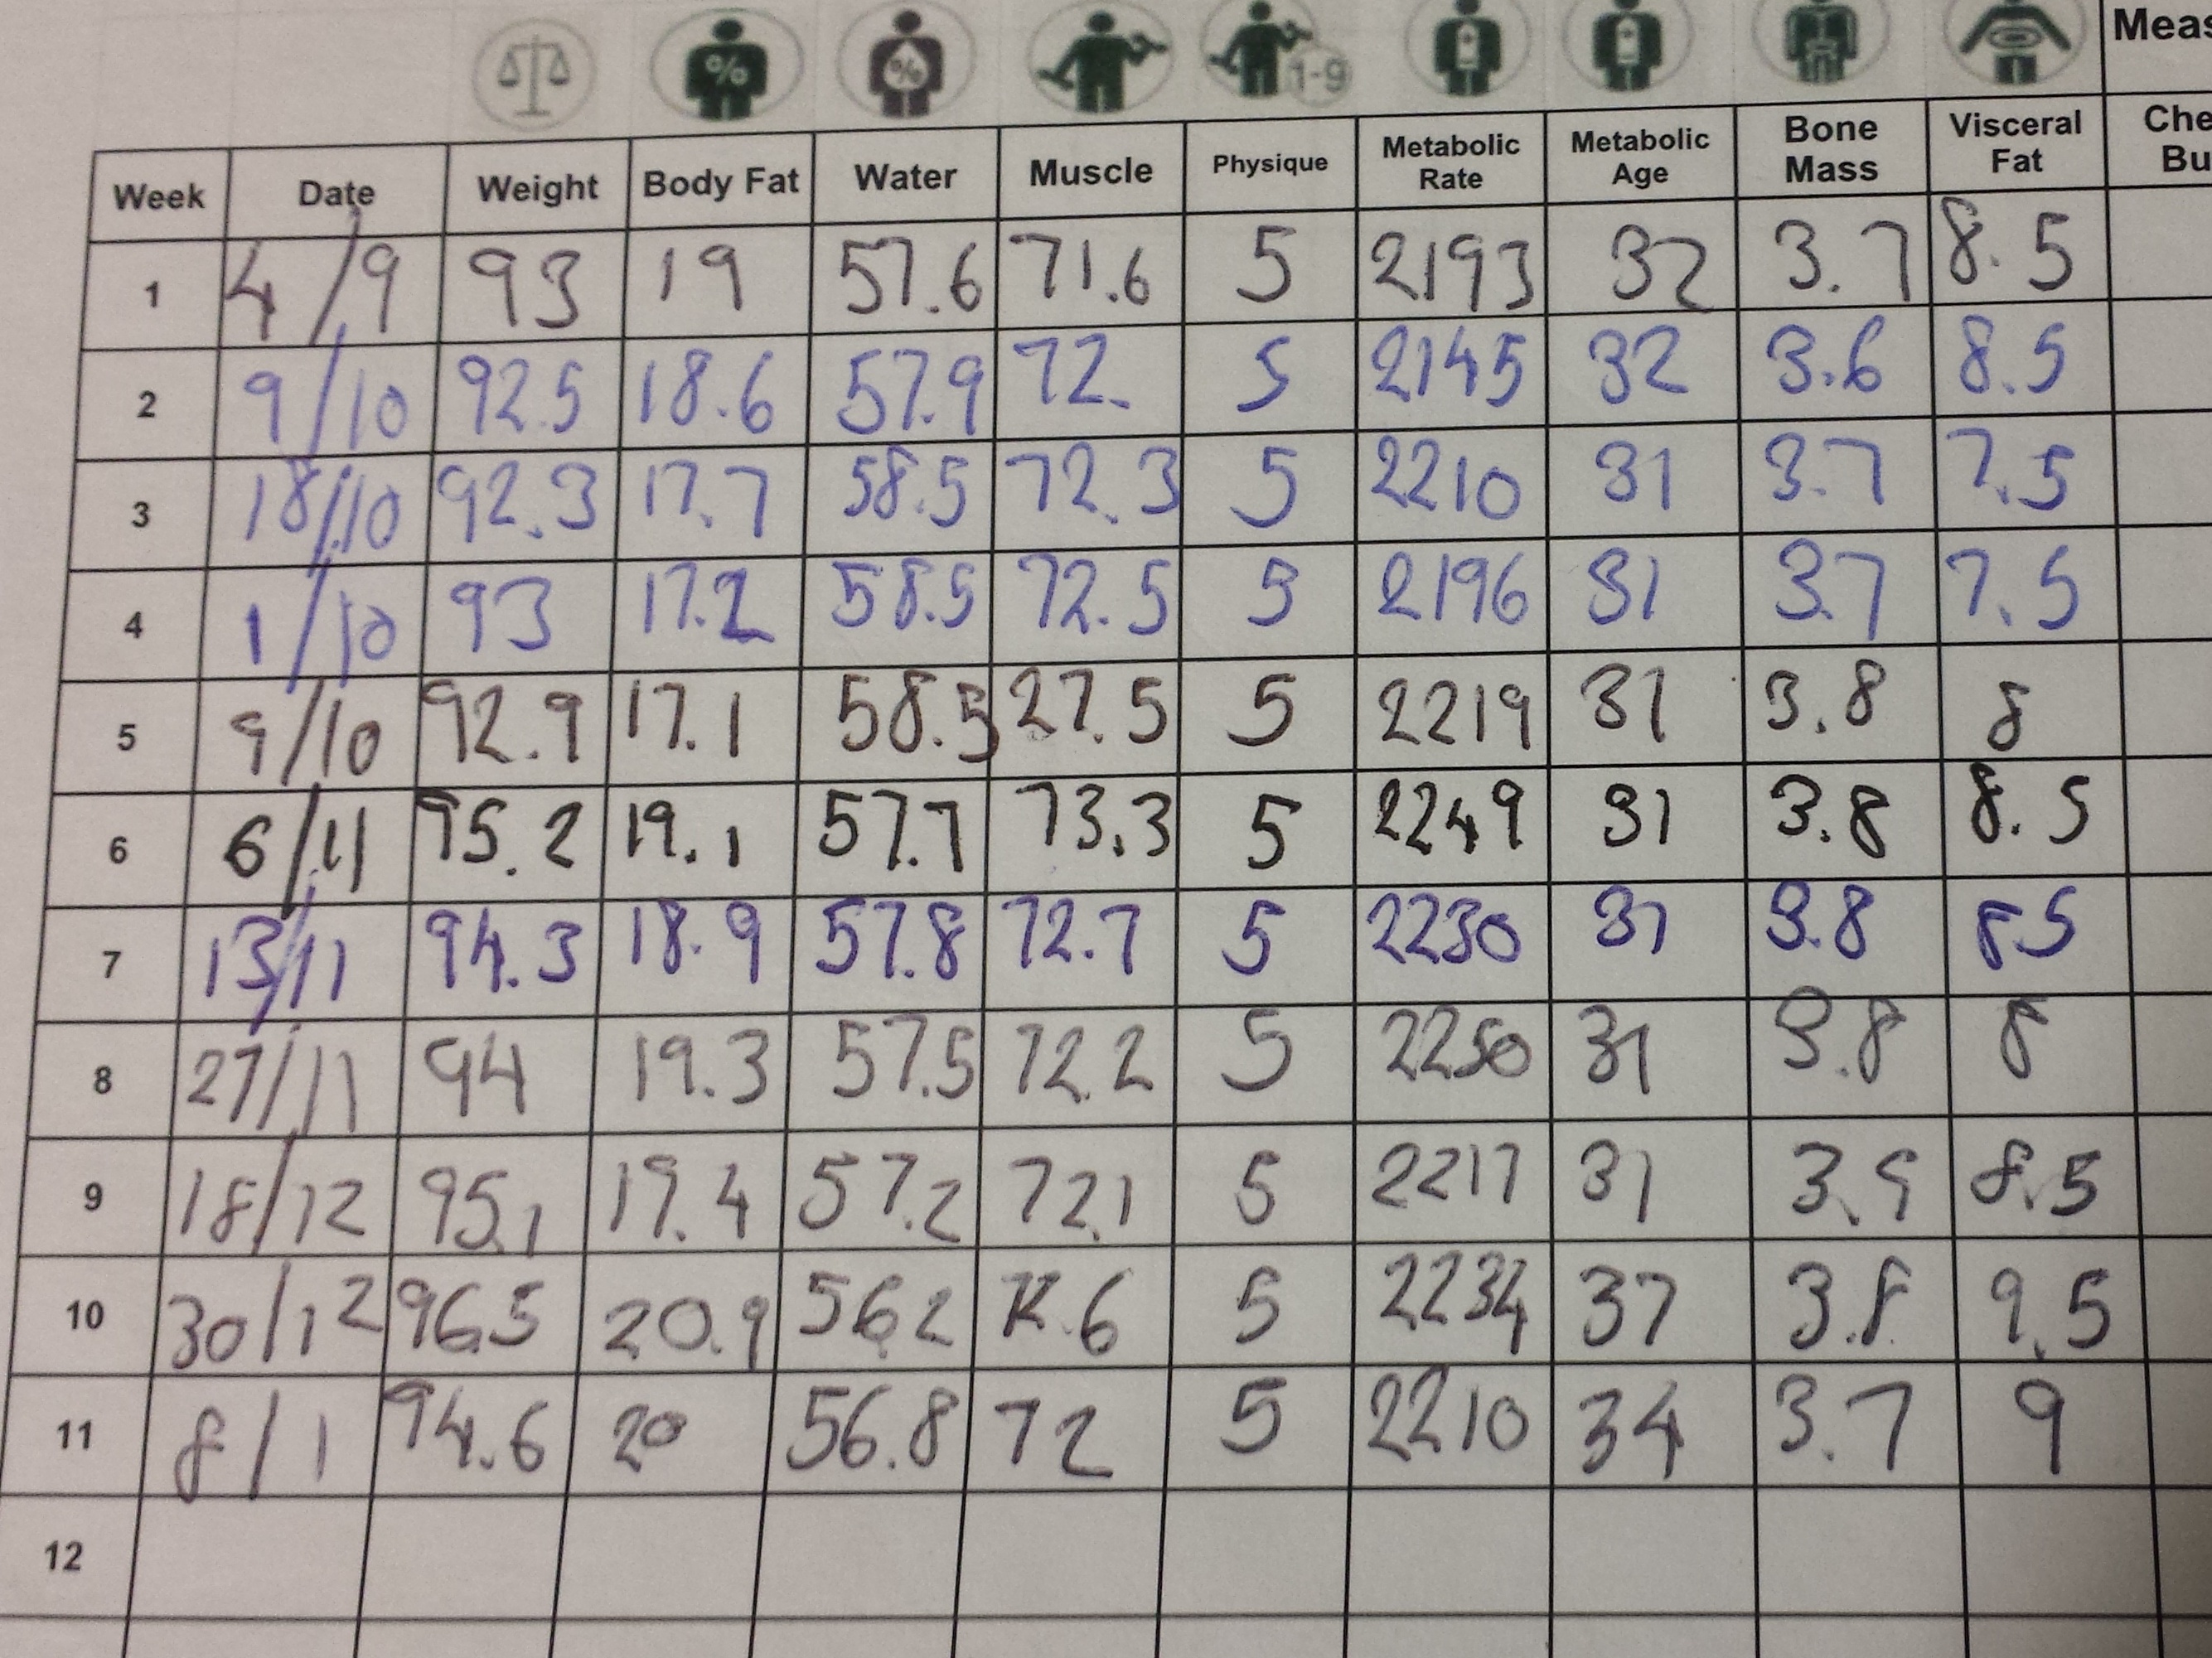 % % 1-9
Meas
Week Date Weight Body Fat Water Muscle Physique Metabolic Rate Metabolic Age Bone Mass Visceral Fat Che Bu
1 4/9 93 19 57.6 71.6 5 2193 32 3.7 8.5
2 9/10 92.5 18.6 57.9 72. 5 2145 32 3.6 8.5
3 18/10 92.3 17.7 58.5 72.3 5 2210 31 3.7 7.5
4 1/10 93 17.2 58.5 72.5 5 2196 31 3.7 7.5
5 9/10 92.9 17.1 58.5 27.5 5 2219 31 3.8 8
6 6/11 95.2 19.1 57.7 73.3 5 2249 31 3.8 8.5
7 13/11 94.3 18.9 57.8 72.7 5 2230 31 3.8 85
8 27/11 94 19.3 57.5 72.2 5 2250 31 3.8 8
9 18/12 95.1 19.4 57.2 72.1 5 2217 31 3.9 8.5
10 30/12 96.5 20.9 56.2 5 2234 37 3.8 9.5
11 8/1 94.6 20 56.8 72 5 2210 34 3.7 9
12